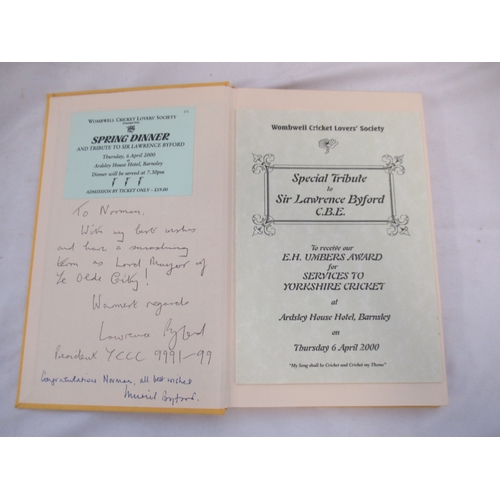 WOMBWELL CRICKET LOVERS' SOCIETY
SPRING DINNER
AND TRIBUTE TO SIR LAWRENCE BYFORD
Thursday, 6 April 2000
at
Ardsley House Hotel, Barnsley
Dinner will be served at 7.30pm
ADMISSION BY TICKET ONLY - £19.00
To Norman,
With my best wishes
and have a smashing
term as Lord Mayor of
Ye Olde City!
Warmest regards
Lawrence Byford
President YCCC 9991-99
Congratulations Norman, all best wishes
Muriel Byford.
Wombwell Cricket Lovers' Society
Special Tribute
to
Sir Lawrence Byford
C.B.E.
To receive our
E.H. UMBERS AWARD
for
SERVICES TO
YORKSHIRE CRICKET
at
Ardsley House Hotel, Barnsley
on
Thursday 6 April 2000
"My Song shall be Cricket and Cricket my Theme"